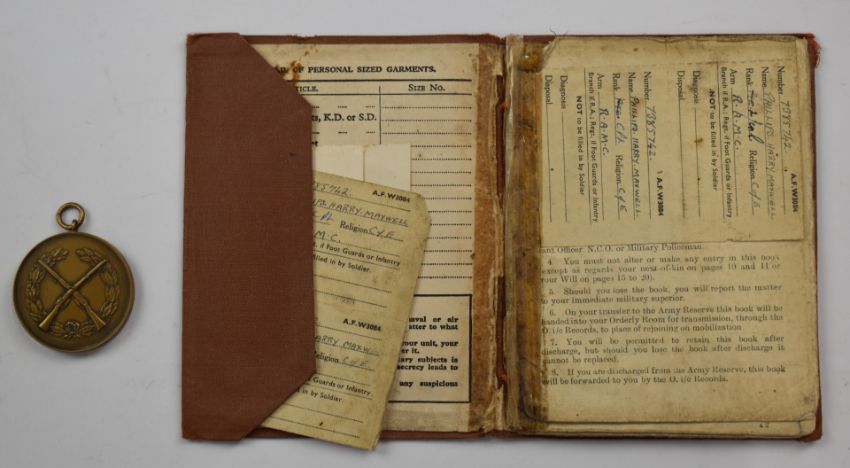 OF PERSONAL SIZED GARMENTS.
SIZE No.
K.D. or S.D.
A.F.W3084
HARRY. MAXWELL
Religion C of E
if Foot Guards or Infantry
filled in by Soldier.
A.F.W3084
HARRY. MAXWELL
Religion C of E
if Foot Guards or Infantry
filled in by Soldier.
naval or air
matter to what
your unit, your
er it.
tary subjects is
secrecy leads to
any suspicious
A.F.W3084
Number 7385742
Name PHILLIPS HARRY MAXWELL
Rank Cpl Religion C of E
Arm R.A.M.C.
Branch if R.A.; Regt. if Foot Guards or Infantry
NOT to be filled in by Soldier
Diagnosis
Disposal
A.F.W3084
Number 7385742
Name PHILLIPS HARRY MAXWELL
Rank Cpl Religion C of E
Arm R.A.M.C.
Branch if R.A.; Regt. if Foot Guards or Infantry
NOT to be filled in by Soldier
Diagnosis
Disposal
ant Officer, N.C.O. or Military Policeman.
4. You must not alter or make any entry in this book
except as regards your next-of-kin on pages 10 and 11 or
your Will on pages 15 to 20).
5. Should you lose the book, you will report the matter
to your immediate military superior.
6. On your transfer to the Army Reserve this book will be
handed into your Orderly Room for transmission, through the
O. i/c Records, to place of rejoining on mobilization
7. You will be permitted to retain this book after
discharge, but should you lose the book after discharge it
cannot be replaced.
8. If you are discharged from the Army Reserve, this book
will be forwarded to you by the O. i/c Records.